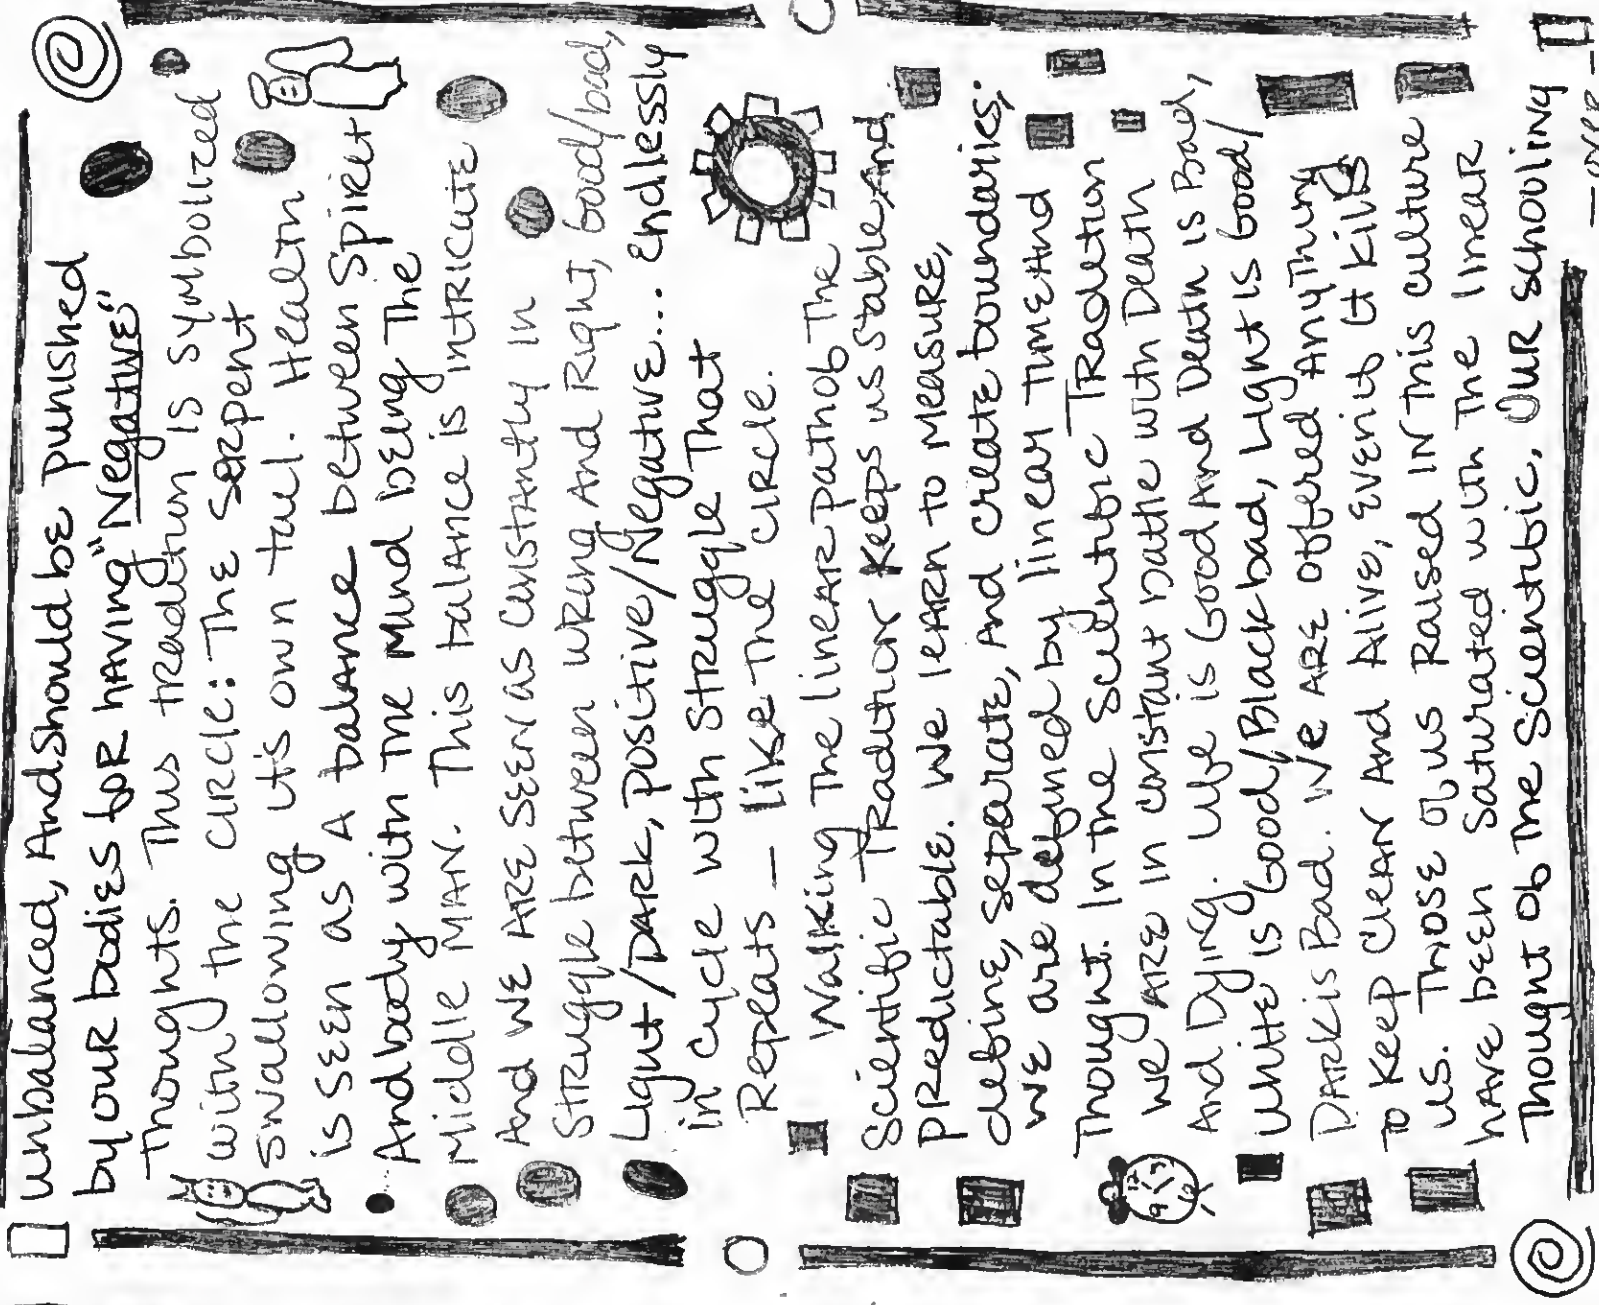 unbalanced, And should be punished
by our bodies for having "Negative"
Thoughts. This tradition is symbolized
with the circle: The serpent
swallowing it's own tail. Health
is seen as A balance between Spirit
And body with the Mind being The
Middle MAN. This balance is intricate
And WE ARE SEEN as constantly in
Struggle between wrong And Right, Good/bad,
Light/DARK, positive/Negative... Endlessly
in cycle with struggle That
Repeats — like The CIRCLE.
Walking The linear path of The
Scientific Tradition Keeps us Stable And
Predictable. We learn to Measure,
define, separate, And create boundaries;
We are defined by linear Time And
Thought. In the Scientific Tradition
We ARE in constant battle with Death
And Dying. Life is Good And Death is Bad,
White is Good/Black bad, Light is Good/
DARK is Bad. We ARE offered Anything
To Keep Clean And Alive, Even if it kills
us. Those of us Raised IN This culture
have been saturated with The linear
Thought of The Scientific. Our schooling
—over—
12
3
6
9